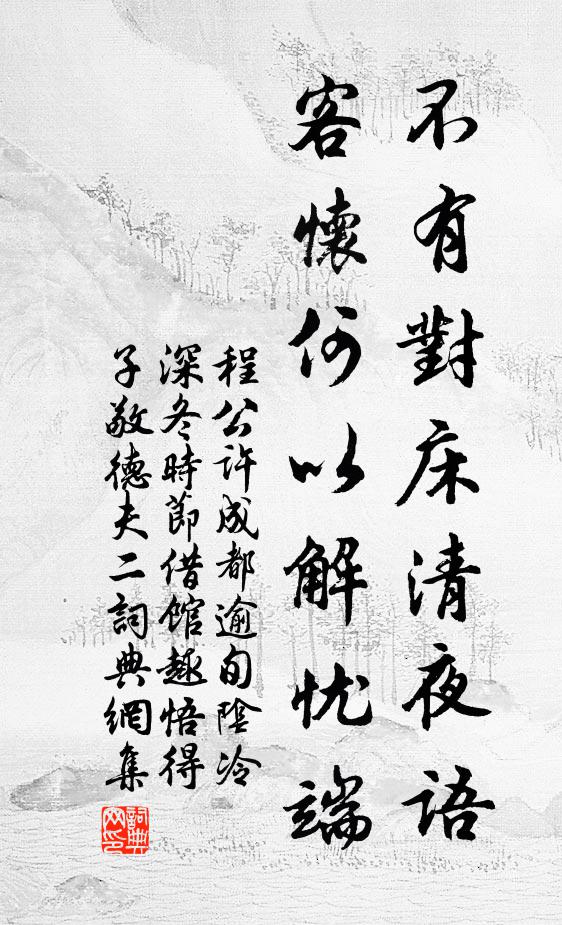 不有對床清夜語
客懷何以解忧端
程公许成都逾旬陰冷
深冬時節借館趣悟得
子敬德夫二詞典網集
詞典網印